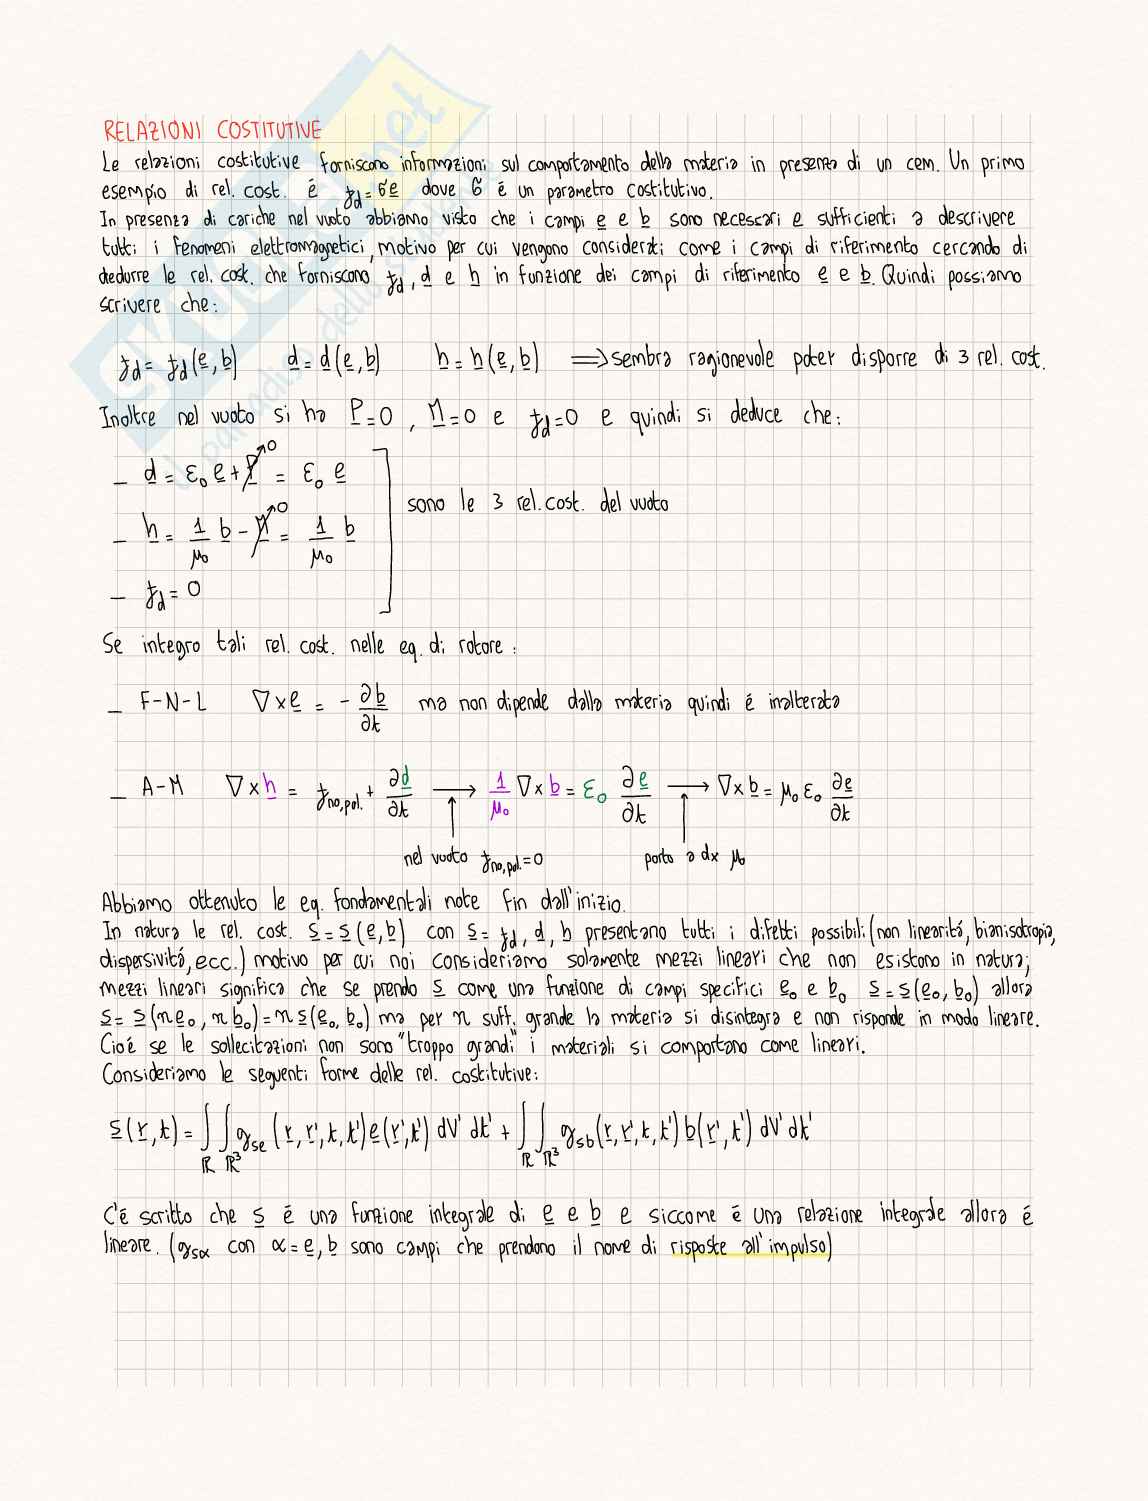 RELAZIONI COSTITUTIVE
Le relazioni costitutive forniscono informazioni sul comportamento della materia in presenza di un cem. Un primo
esempio di rel. cost. é j_d = σe dove σ é un parametro costitutivo.
In presenza di cariche nel vuoto abbiamo visto che i campi e e b sono necessari e sufficienti a descrivere
tutti i fenomeni elettromagnetici, motivo per cui vengono considerati come i campi di riferimento cercando di
dedurre le rel. cost. che forniscono j_d, d e h in funzione dei campi di riferimento e e b. Quindi possiamo
scrivere che:
j_d = j_d(e,b) d = d(e,b) h = h(e,b) ⟹ sembra ragionevole poter disporre di 3 rel. cost.
Inoltre nel vuoto si ha P=0, M=0 e j_d=0 e quindi si deduce che:
– d = ε₀ e + P↗0 = ε₀ e
– h = 1/μ₀ b – M↗0 = 1/μ₀ b
sono le 3 rel. cost. del vuoto
– j_d = 0
Se integro tali rel. cost. nelle eq. di rotore:
– F-N-L ∇×e = – ∂b/∂t ma non dipende dalla materia quindi é inalterata
– A-M ∇×h = j_no,pol. + ∂d/∂t ⟶ 1/μ₀ ∇×b = ε₀ ∂e/∂t ⟶ ∇×b = μ₀ ε₀ ∂e/∂t
nel vuoto j_no,pol.=0 porto a dx μ₀
Abbiamo ottenuto le eq. fondamentali note fin dall'inizio.
In natura le rel. cost. s=s(e,b) con s= j_d, d, h presentano tutti i difetti possibili (non linearitá, bianisotropia,
dispersivitá, ecc.) motivo per cui noi consideriamo solamente mezzi lineari che non esistono in natura;
mezzi lineari significa che se prendo s come una funzione di campi specifici e₀ e b₀ s=s(e₀,b₀) allora
s= s(ne₀, nb₀)=ns(e₀,b₀) ma per n suff. grande la materia si disintegra e non risponde in modo lineare.
Cioé se le sollecitazioni non sono "troppo grandi" i materiali si comportano come lineari.
Consideriamo le seguenti forme delle rel. costitutive:
s(r,t) = ∫_ℝ ∫_ℝ³ g_se(r,r',t,t') e(r',t') dV' dt' + ∫_ℝ ∫_ℝ³ g_sb(r,r',t,t') b(r',t') dV' dt'
C'é scritto che s é una funzione integrale di e e b e siccome é una relazione integrale allora é
lineare. (g_sα con α=e,b sono campi che prendono il nome di risposte all'impulso)
skuola.net
il paradiso dello studente